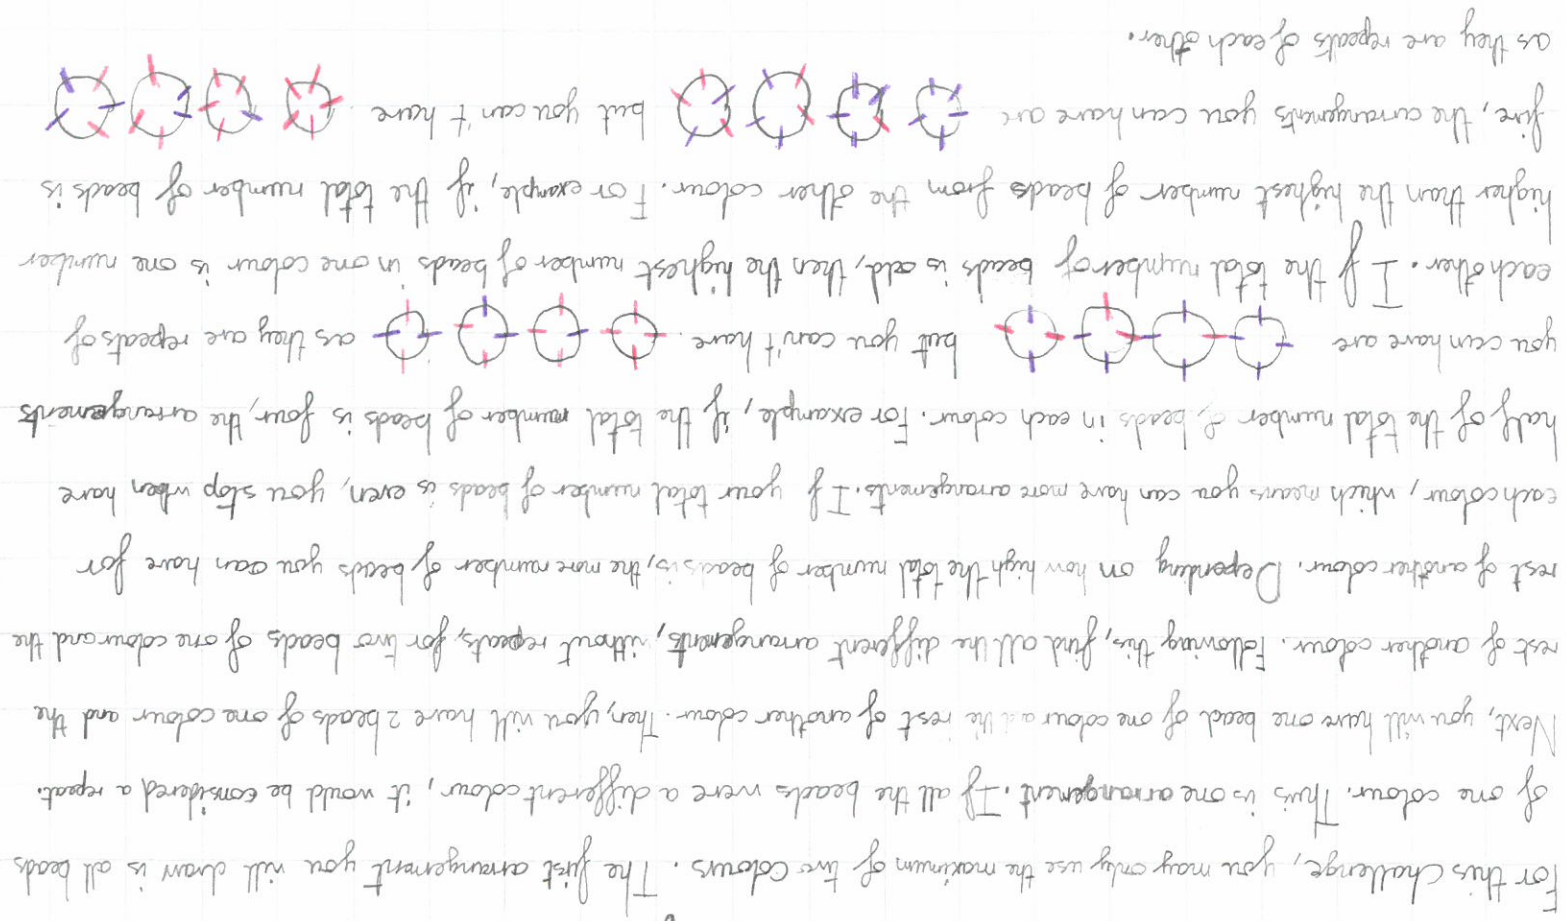 For this challenge, you may only use the maximum of two colours. The first arrangement you will draw is all beads
of one colour. This is one arrangement. If all the beads were a different colour, it would be considered a repeat.
Next, you will have one bead of one colour and the rest of another colour. Then, you will have 2 beads of one colour and the
rest of another colour. Following this, find all the different arrangements, without repeats, for two beads of one colour and the
rest of another colour. Depending on how high the total number of beads is, the more number of beads you can have for
each colour, which means you can have more arrangements. If your total number of beads is even, you stop when have
half of the total number of beads in each colour. For example, if the total number of beads is four, the arrangements
you can have are but you can't have as they are repeats of
eachother. If the total number of beads is odd, then the highest number of beads in one colour is one number
higher than the highest number of beads from the other colour. For example, if the total number of beads is
five, the arrangements you can have are but you can't have
as they are repeats of each other.